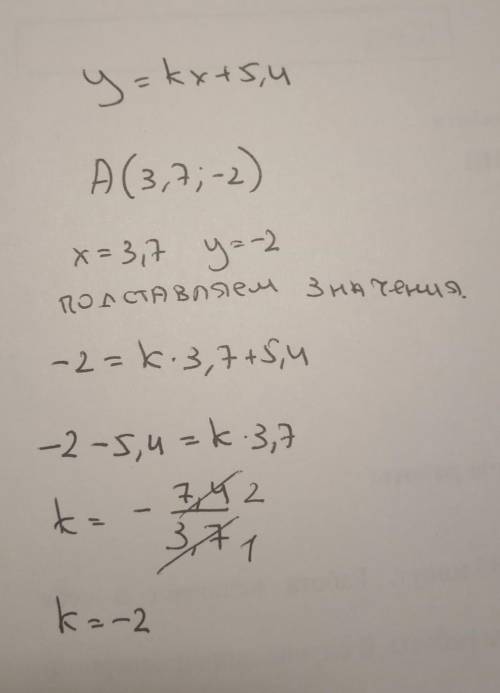 y = kx + 5,4
A(3,7; -2)
x = 3,7 y = -2
подставляем значения.
-2 = k · 3,7 + 5,4
-2 - 5,4 = k · 3,7
k = - 7,4 2 / 3,7 1
k = -2